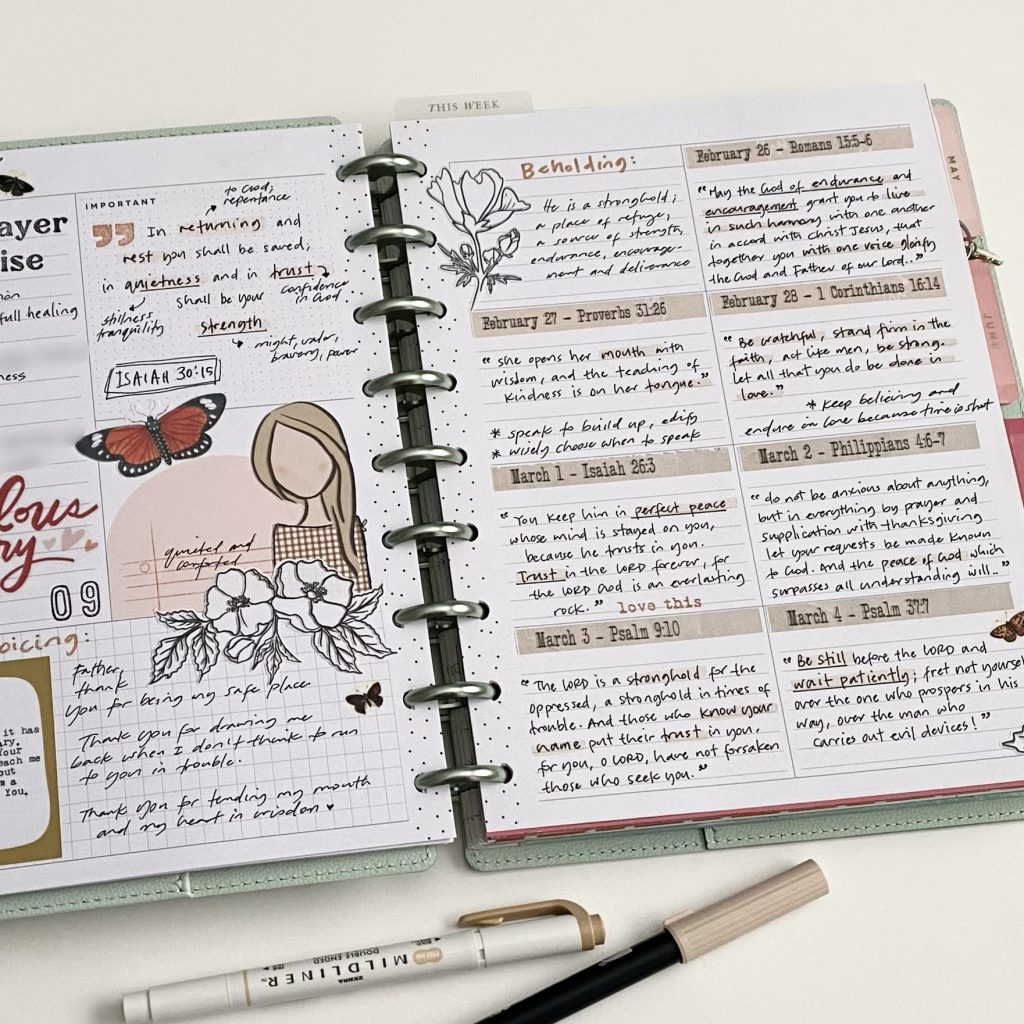 THIS WEEK
ayer
ise
full healing
ness
IMPORTANT
to God;
repentance
In returning and
rest you shall be saved;
in quietness and in trust
shall be your
confidence
in God
stillness
tranquility
strength
might, valor,
bravery, power
ISAIAH 30:15
lous
ry
09
quieted and
comforted
oicing:
it has
ary.
Your
each me
out
s a
You.
Father,
thank
you for being my safe place
Thank you for drawing me
back when I don't think to run
to you in trouble.
Thank you for tending my mouth
and my heart in wisdom ♥
Beholding:
He is a stronghold;
a place of refuge,
a source of strength,
endurance, encourage-
ment and deliverance
February 26 - Romans 15:5-6
"May the God of endurance and
encouragement grant you to live
in such harmony with one another
in accord with Christ Jesus, that
together you with one voice glorify
the God and Father of our Lord.."
February 27 - Proverbs 31:26
"She opens her mouth with
wisdom, and the teaching of
kindness is on her tongue."
* speak to build up, edify
* wisely choose when to speak
February 28 - 1 Corinthians 16:14
"Be watchful, stand firm in the
faith, act like men, be strong.
Let all that you do be done in
love."
* keep believing and
endure in love because time is short
March 1 - Isaiah 26:3
"You keep him in perfect peace
whose mind is stayed on you,
because he trusts in you.
Trust in the LORD forever, for
the LORD God is an everlasting
rock." love this
March 2 - Philippians 4:6-7
"do not be anxious about anything,
but in everything by prayer and
supplication with thanksgiving
let your requests be made known
to God. And the peace of God which
surpasses all understanding will.."
March 3 - Psalm 9:10
"The LORD is a stronghold for the
oppressed, a stronghold in times of
trouble. And those who know your
name put their trust in you,
for you, O LORD, have not forsaken
those who seek you."
March 4 - Psalm 37:7
"Be still before the LORD and
wait patiently; fret not yourself
over the one who prospers in his
way, over the man who
carries out evil devices!"
MAY
JUNE
ZEBRA
MILDLINER
DOUBLE ENDED